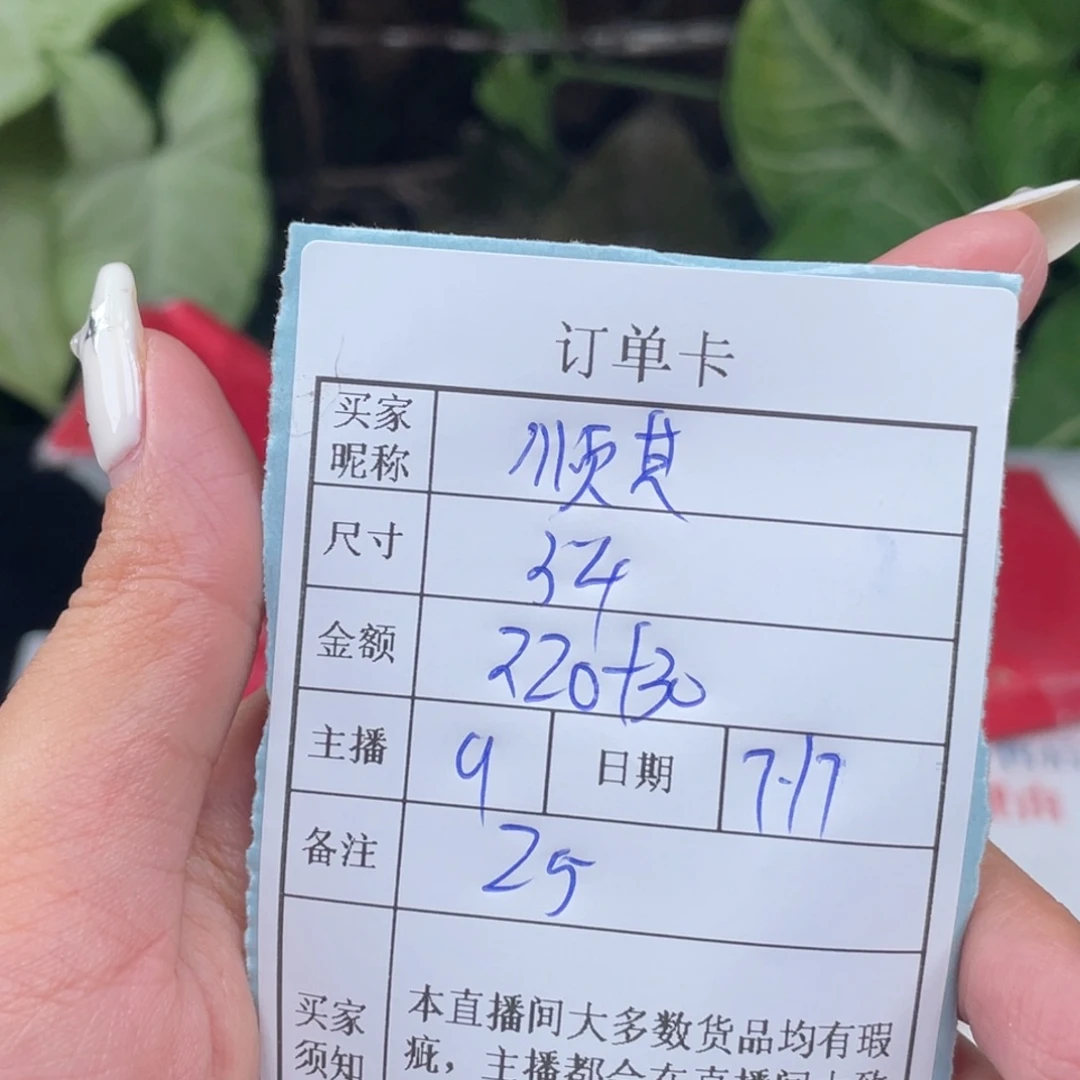 订单卡
买家昵称 顺其
尺寸 54
金额 220+30
主播 9 日期 7.17
备注 25
买家须知 本直播间大多数货品均有瑕
疵，主播都会在直播间大致